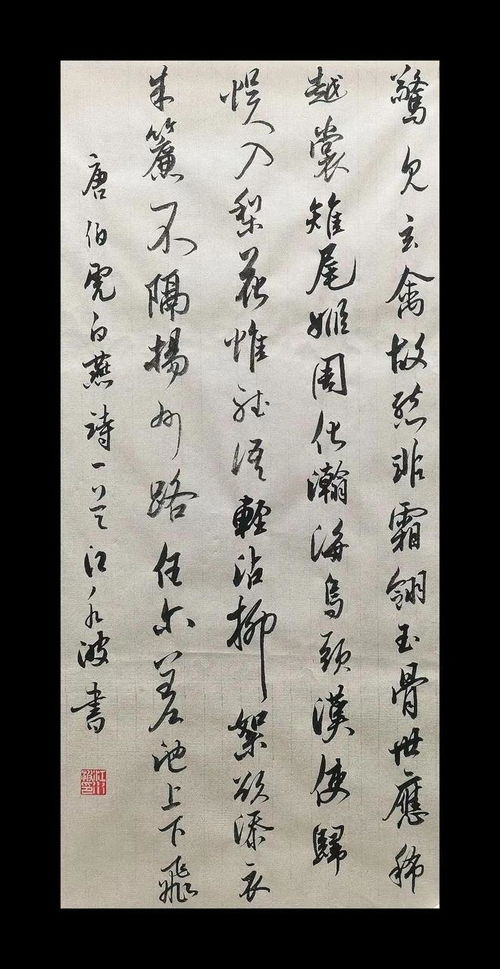 驚見玄禽故態非霜翎玉骨世應稀
越裳雉尾姬周化瀚海烏頭漢使歸
悮入梨花惟聽語輕沾柳絮欲添衣
朱簾不隔揚州路任尔差池上下飛
唐伯虎白燕詩一首江波書